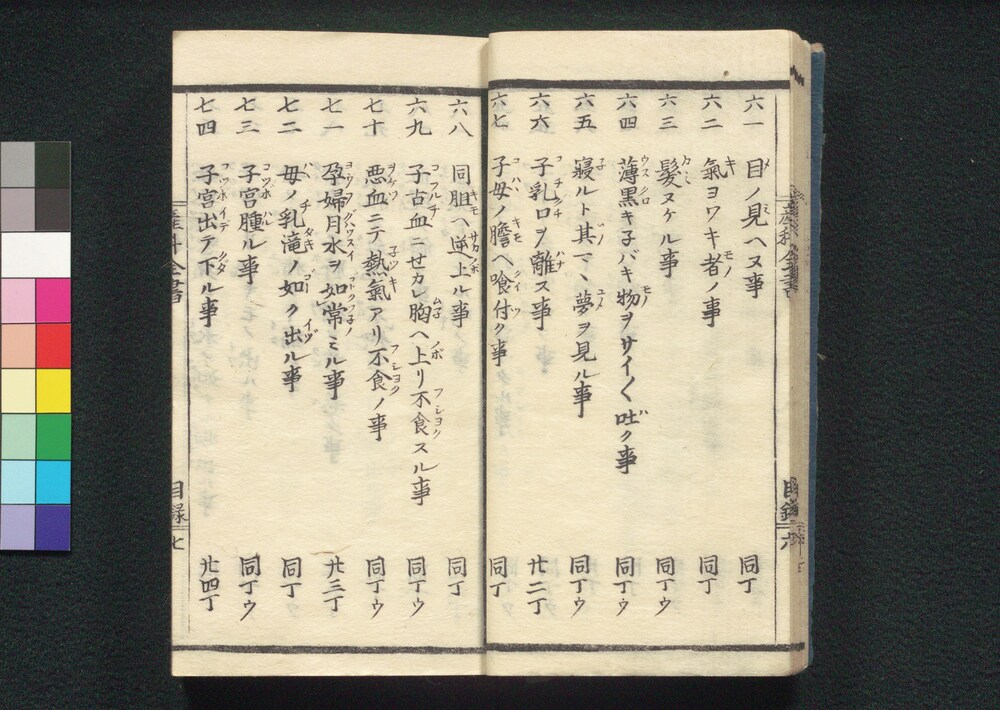 六一 目ノ見ヘヌ事 同丁
六二 氣ヨワキ者ノ事 同丁
六三 髮ヌケル事 同丁ウ
六四 薄黒キ子バキ物ヲサイ〱吐ク事 同丁ウ
六五 寢ルト其マヽ夢ヲ見ル事 同丁ウ
六六 子乳口ヲ離ス事 廿二丁
六七 子母ノ膽ヘ喰付ク事 同丁
目録 六
六八 同胆ヘ逆上ル事 同丁
六九 子古血ニせカレ胸ヘ上リ不食スル事 同丁ウ
七十 悪血ニテ熱氣アリ不食ノ事 同丁ウ
七一 孕婦月水ヲ如常ミル事 廿三丁
七二 母ノ乳滝ノ如ク出ル事 同丁
七三 子宮腫ル事 同丁ウ
七四 子宮出テ下ル事 廿四丁
産科全書 目録 七